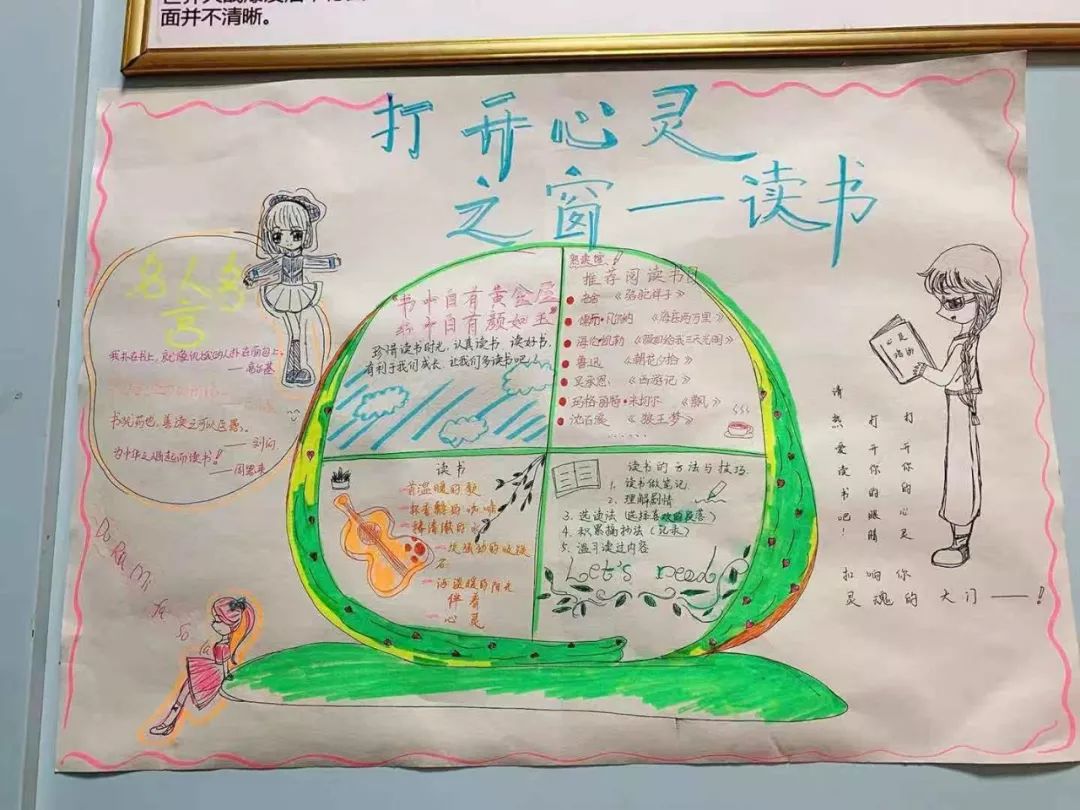 面并不清晰。
打开心灵
之窗一读书
名人名
言
我扑在书上,就像饥饿的人扑在面包上。
——高尔基
书犹药也,善读之可以医愚。
——刘向
为中华之崛起而读书!
——周恩来
Do Ra Mi
"书中自有黄金屋
书中自有颜如玉"
珍惜读书时光,认真读书,读好书,
有利于我们成长,让我们多读书吧。
推荐阅读书目
老舍 《骆驼祥子》
儒勒·凡尔纳 《海底两万里》
海伦·凯勒 《假如给我三天光明》
鲁迅 《朝花夕拾》
吴承恩 《西游记》
玛格丽特·米切尔 《飘》
沈石溪 《狼王梦》
……
读书
一首温暖的歌
一杯香醇的咖啡
一块流动的
石
伴着
心灵
读书的方法与技巧
1. 读书做笔记
2. 理解剧情
3. 选读法(选择喜欢的段落)
4. 积累摘抄法(记录)
5. 温习读过内容
Let's read
心灵
打开你的心灵
打开你的眼睛
请热爱读书吧!
扣响你
灵魂的 大门——!